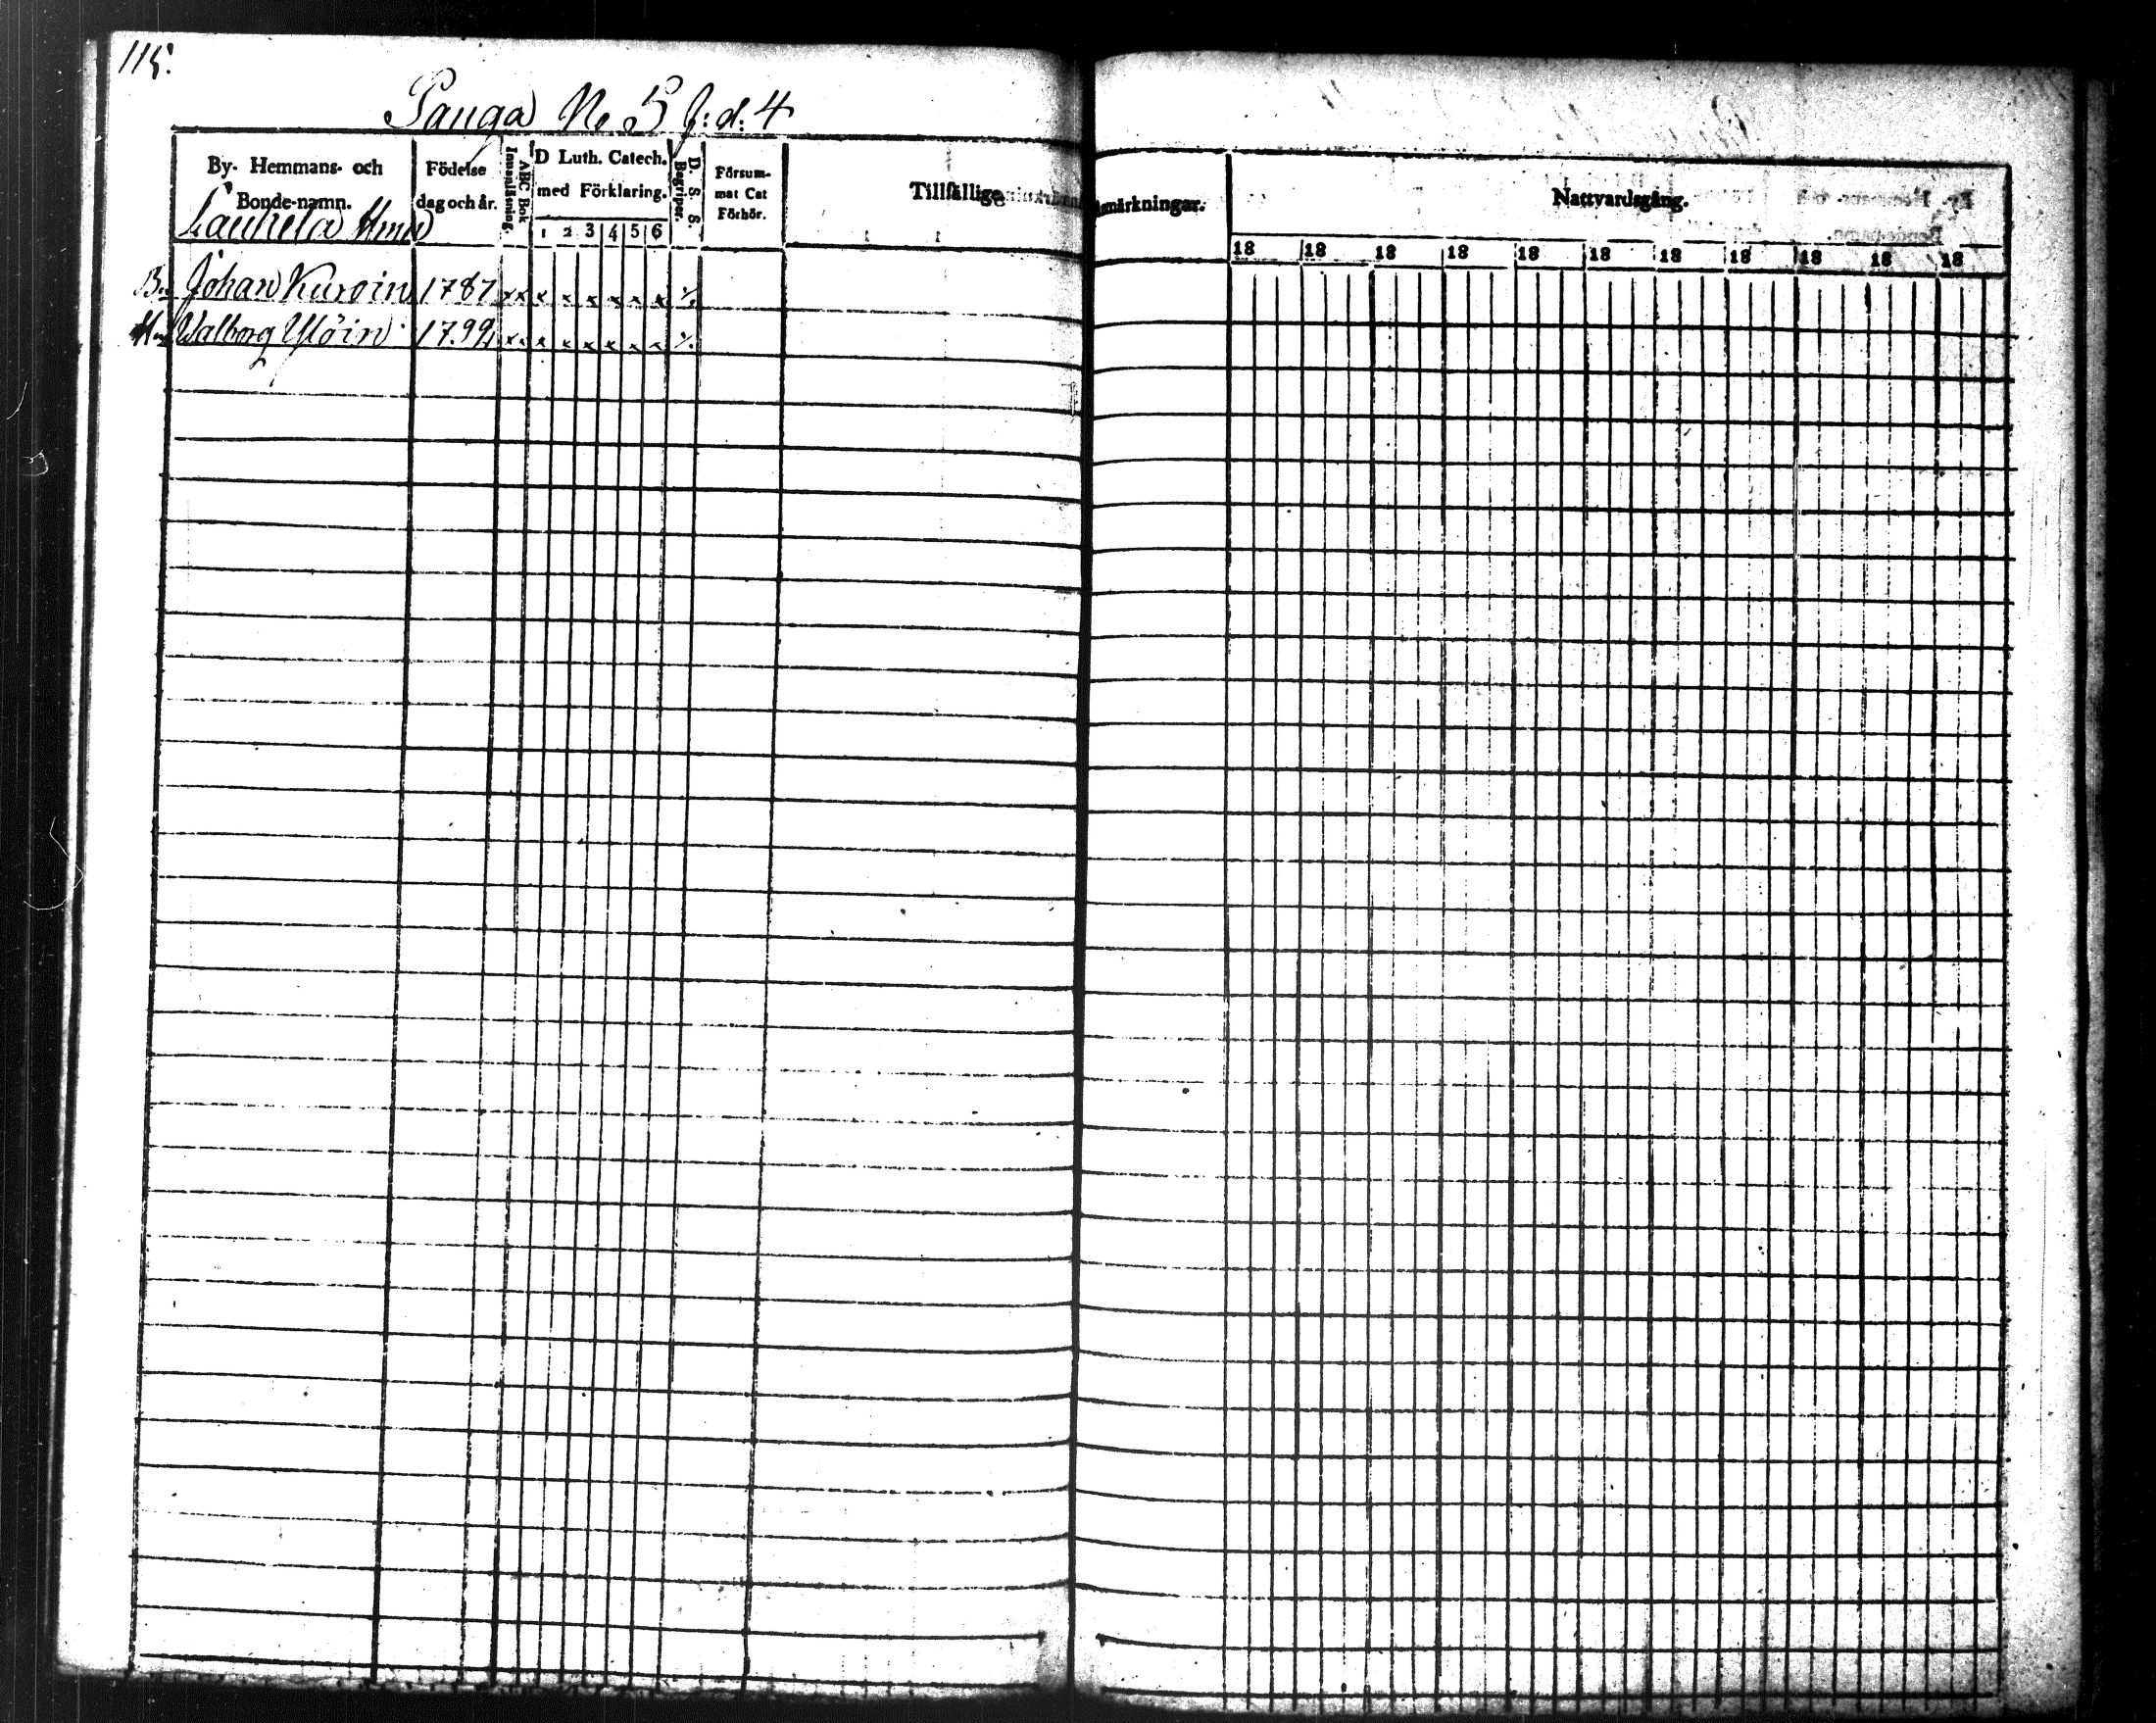 115.
Pauga No 5 J:d:4
By- Hemmans- och Bonde-namn.
Födelse dag och år.
Innanläsning.
ABC Bok
D Luth. Catech. med Förklaring.
1 2 3 4 5 6
D. S. S. Begriper.
Försum-mat Cat Förhör.
Tillfällige
Anmärkningar.
Nattvardsgång.
18 18 18 18 18 18 18 18 18 18 18
Johan 1787 x x x x x x x x
Valborg 1794 x x x x x x x x